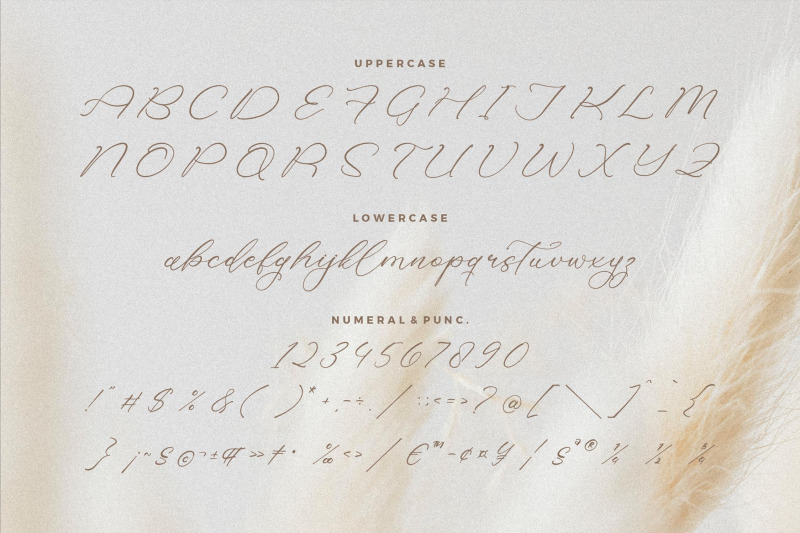 UPPERCASE
A B C D E F G H I J K L M
N O P Q R S T U V W X Y Z
LOWERCASE
abcdefghijklmnopqrstuvwxyz
NUMERAL & PUNC.
1234567890
! " # $ % & ( ) * + , - ÷ . / : ; < = > ? @ [ \ ] ^ _ ` {
} ¡ ~ § © ¬ ± ¶ » ≠ • ‰ < > / € ™ – ¢ ¤ ¥ ¦ § ª ®